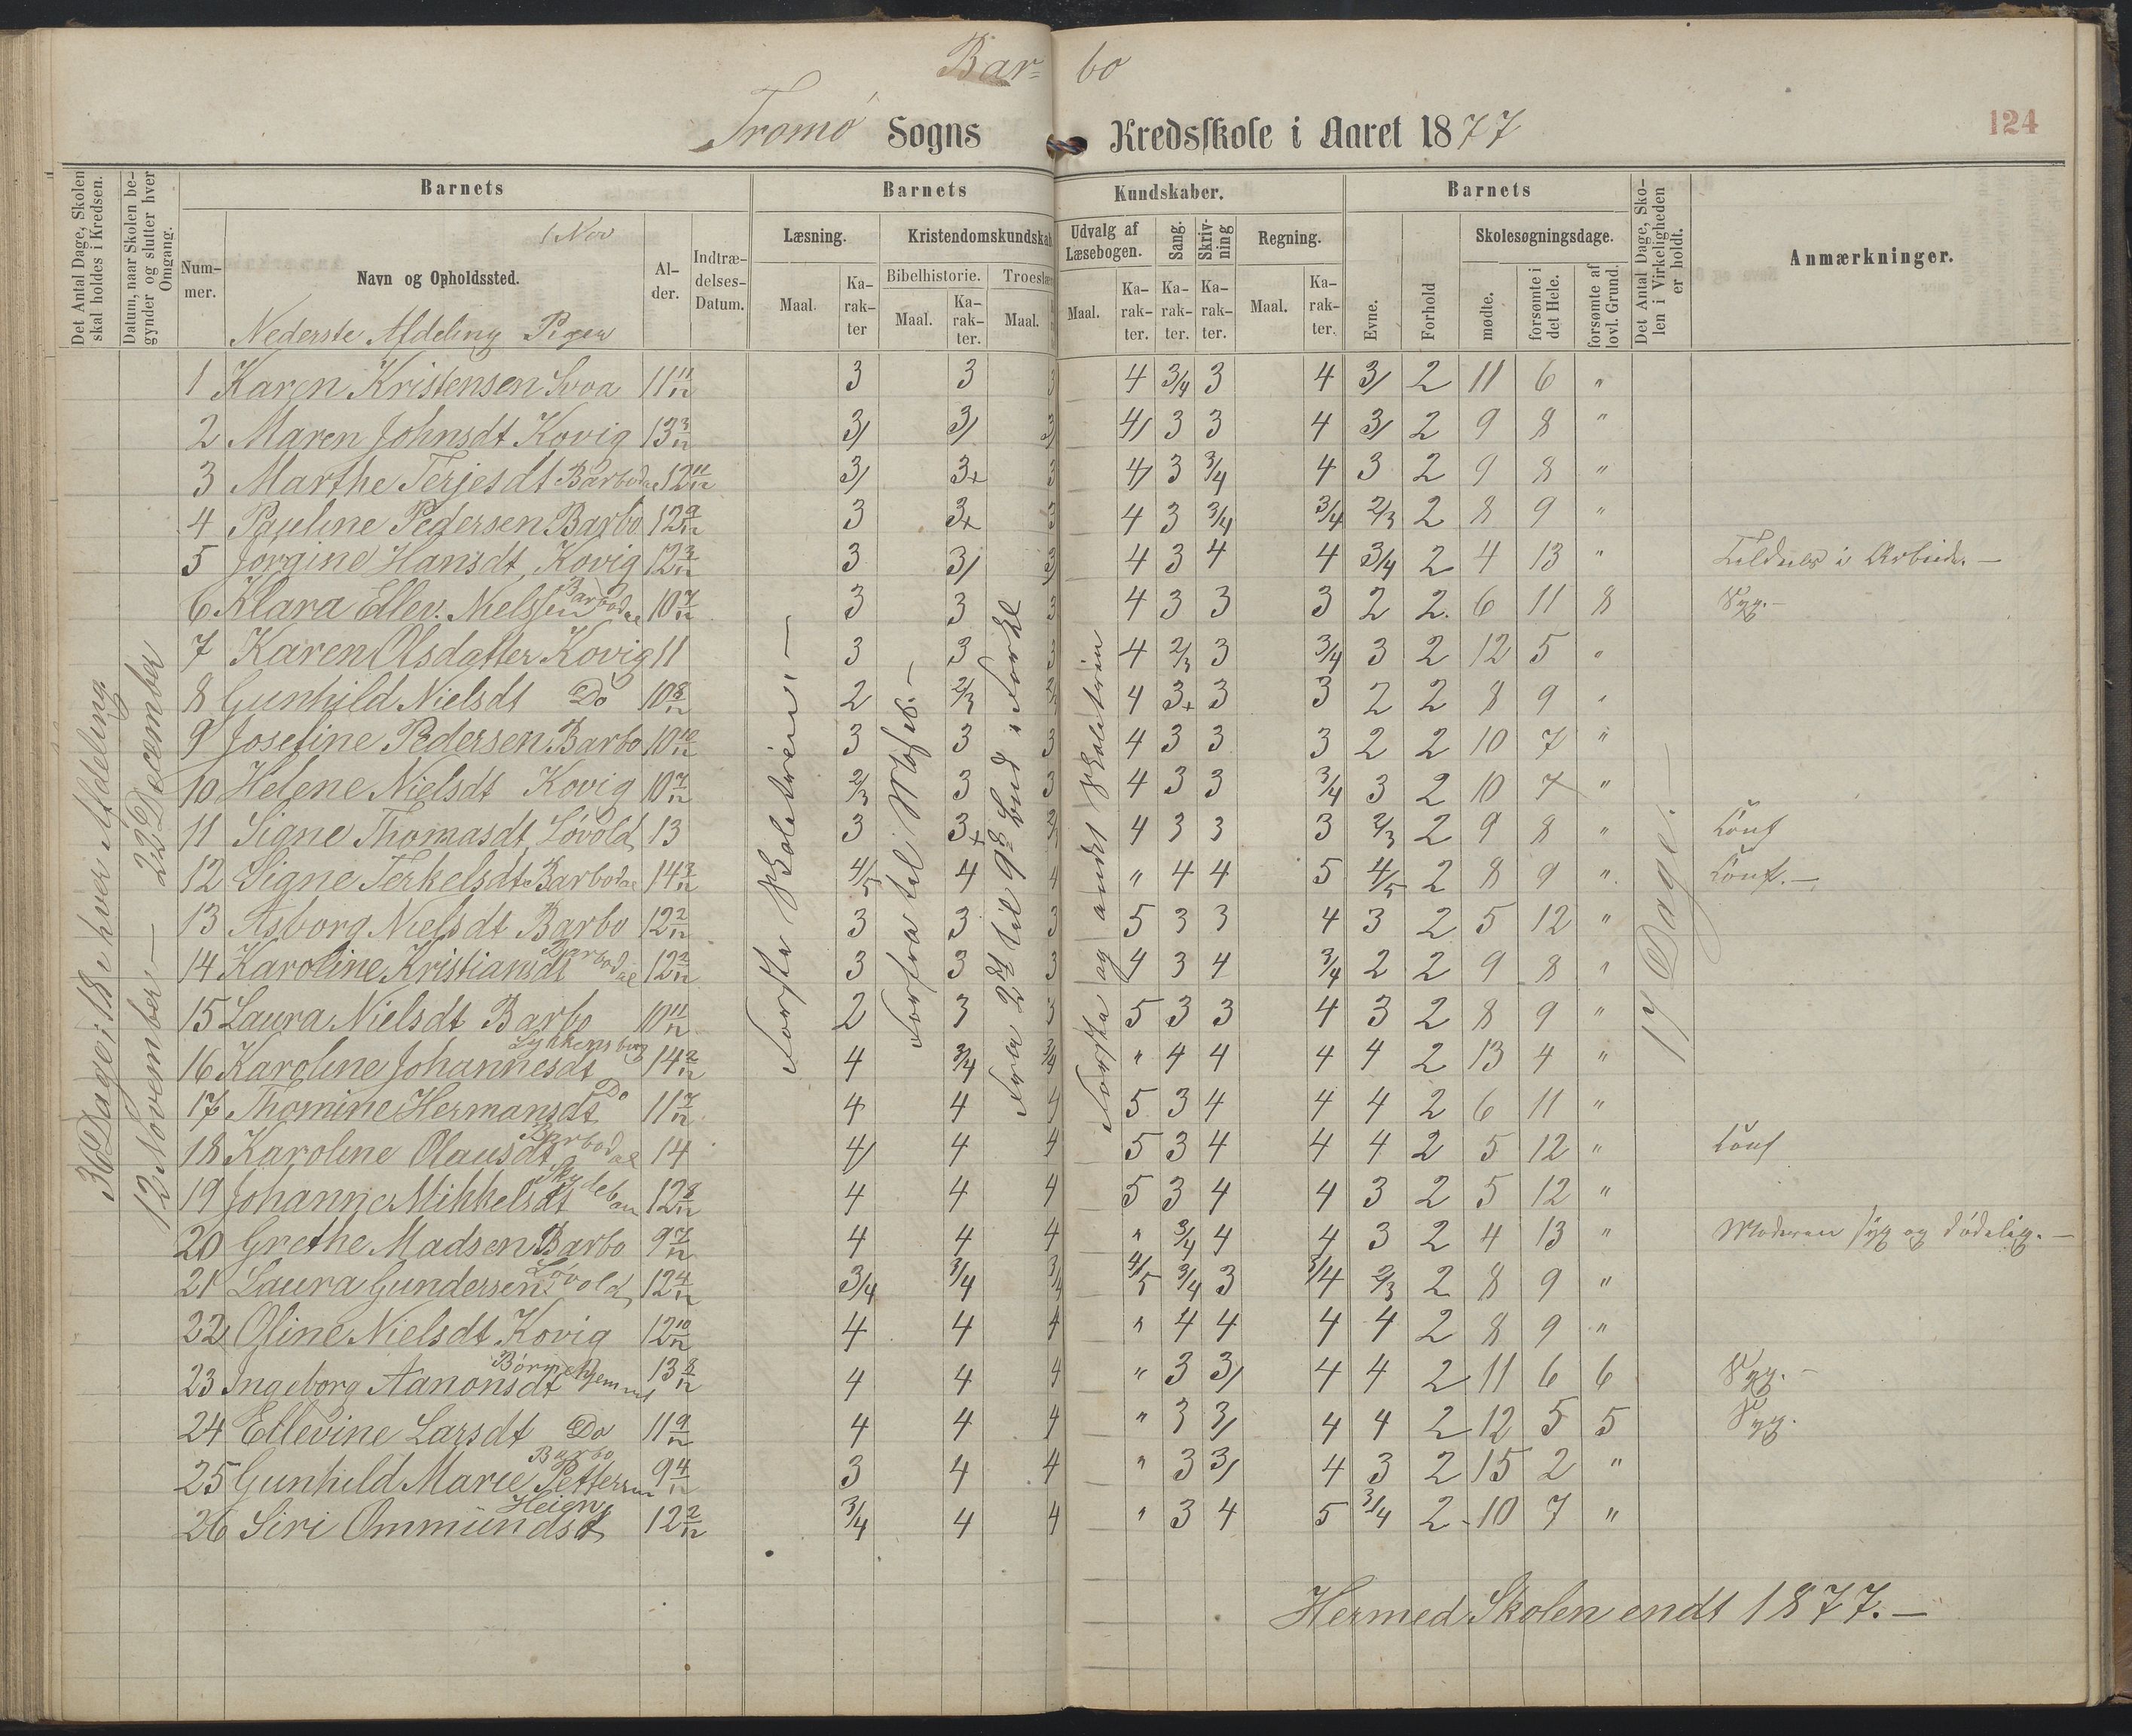 Bar= bo
Tromø Sogns Kredsskole i Aaret 1877
124
Det Antal Dage, Skolen skal holdes i Kredsen.
Datum, naar Skolen begynder og slutter hver Omgang.
Barnets
Barnets Kundskaber.
Barnets
Det Antal Dage, Skolen i Virkeligheden er holdt.
Anmærkninger.
Nummer.
1 Nov
Navn og Opholdssted.
Nederste Afdeling Piger
Alder.
Indtrædelses-Datum.
Læsning.
Kristendomskundskab
Udvalg af Læsebogen.
Sang.
Skrivning
Regning.
Skolesøgningsdage.
Bibelhistorie.
Troeslær
Maal.
Karakter
Maal.
Karakter.
Maal.
Maal.
Karakter.
Karakter.
Karakter.
Maal.
Karakter.
Evne.
Forhold
mødte.
forsømte i det Hele.
forsømte af lovl. Grund.
36 Dage; 18 i hver Afdeling.
12 November — 22 December
Første Skoletrin. —
Forfra til
Fra 2det til 9de Bud
Første og andet Skoletrin
17 Dage. —
1 Karen Kristensen Svoa 11 11/12 3 3 3 4 3/4 3 4 3/ 2 11 6 "
2 Maren Johnsdt Kovig 13 3/12 3/ 3/ 3/ 4/ 3 3 4 3/ 2 9 8 "
3 Marthe Terjesdt Barbodal 12 11/12 3/ 3+ 3 4/ 3 3/4 4 3 2 9 8 "
4 Pauline Pedersen Barbo 12 9/12 3 3+ 3 4 3 3/4 3/4 2/3 2 8 9 "
5 Jorgine Hansdt, Kovig 12 3/12 3 3/ 3/ 4 3 4 4 3/4 2 4 13 " i Arbeide. —
6 Klara Ellev. Nielssen Barbodal 10 7/12 3 3 3 4 3 3 3 2 2. 6 11 8 Syg. —
7 Karen Olsdatter Kovig 11 3 3 3 4 2/3 3 3/4 3 2 12 5 "
8 Gunhild Nielsdt Do 10 8/12 2 2/3 2/3 4 3+ 3 3 2 2 8 9 "
9 Josefine Pedersen Barbo 10 10/12 3 3 3 4 3 3 3 2 2 10 7 "
10 Helene Nielsdt Kovig 10 7/12 2/3 3 3 4 3 3 3/4 3 2 10 7 "
11 Signe Thomasdt, Løvold, 13 3 3+ 4 3 3 3 2/3 2 9 8 " Conf
12 Signe Terkelsdt Barbodal 14 3/12 4/5 4 4 " 4 4 5 4/5 2 8 9 " Conf. —
13 Asborg Nielsdt Barbo 12 2/12 3 3 3 5 3 3 4 3 2 5 12 "
14 Karoline Kristiansdt Barbodal 12 2/12 3 3 3 4 3 4 3/4 2 2 9 8 "
15 Laura Nielsdt Barbo 10 11/12 2 3 3 5 3 3 4 3 2 8 9 "
16 Karoline Johannesdt Lykkensborg 14 2/12 4 3/4 3/4 " 4 4 4 4 2 13 4 "
17 Thomine Hermansdt Do 11 7/12 4 4 4 5 3 4 4 4 2 6 11 "
18 Karoline Olausdt Barbodal 14 4/ 4 4 5 3 4 4 4 2 5 12 " Conf
19 Johanne Mikkelsdt Skyteban 12 8/12 4 4 4 5 3 4 4 3 2 5 12 "
20 Grethe Madsen Barbo 9 7/12 4 4 4 " 3/4 4 4 3 2 4 13 " Moderen syg og dødelig. —
21 Laura Gundersen Løvold, 12 4/12 3/4 3/4 3/4 4/5 3/4 3 3/4 2/3 2 8 9 "
22 Oline Nielsdt Kovig 12 10/12 4 4 4 " 4 4 4 4 2 8 9 "
23 Ingeborg Aanonsdt Børnehjemmet 13 8/12 4 4 4 " 3 3/ 4 4 2 11 6 6 Syg. —
24 Ellevine Larsdt Do 11 9/12 4 4 4 " 3 3/ 4 4 2 12 5 5 Syg.
25 Gunhild Marie Pettersen Barbo 9 4/12 3 4 4 " 3 3/ 4 3 2 15 2 "
26 Siri Ommündsdt Heien 12 2/12 3/4 4 4 " 3 4 5 3/4 2 10 7 "
Hermed Skolen endt 1877. —